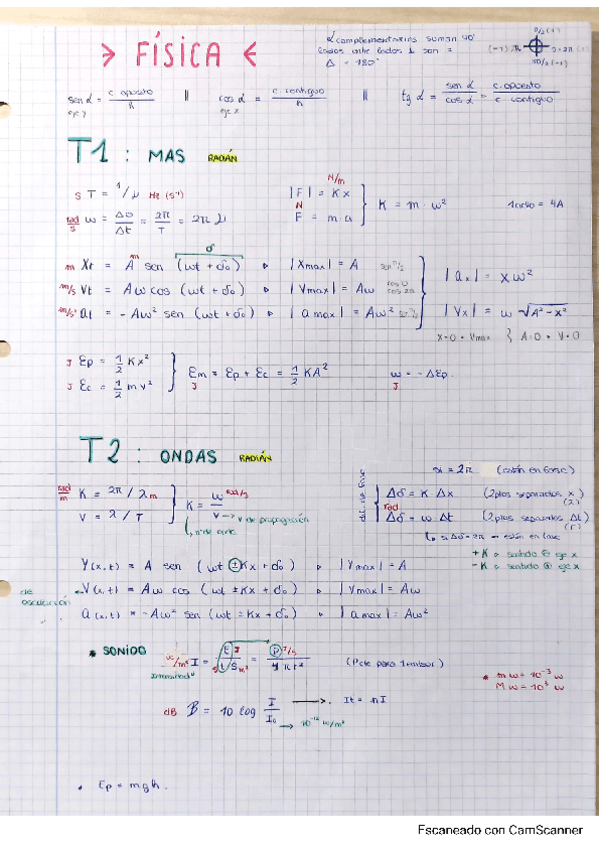 > FÍSICA <
∠ complementarios suman 90°
lados ⊥ son =
Δ = 180°
π/2 (1)
(-1) π
0 = 2π (1)
3π/2 (-1)
sen α = c. opuesto / h
eje y
||
cos α = c. contiguo / h
eje x
||
tg α = sen α / cos α = c. opuesto / c. contiguo
T1 : MAS RADIÁN
s T = 1/ν Hz (s⁻¹)
rad/s ω = Δσ/Δt = 2π/T = 2π ν
N/m
|F| = K x
N
F = m · a
K = m · ω²
1 ciclo = 4A
σ
m Xt = A sen (ωt + δ₀) ▹ |Xmax| = A sen π/2
m/s Vt = Aω cos (ωt + δ₀) ▹ |Vmax| = Aω cos 0 cos 2π
m/s² at = - Aω² sen (ωt + δ₀) ▹ |a max| = Aω² sen π/2
|ax| = X ω²
|Vx| = ω √A² - x²
X = 0 · Vmax { A = 0 · V = 0
J Ep = 1/2 K x²
J Ec = 1/2 m v²
Em = Ep + Ec = 1/2 KA²
J
W = - ΔEp.
J
T2 : ONDAS RADIÁN
rad/m K = 2π / λ m
V = λ / T
K = ω rad/s / V → V de propagación
nº de onda
= 2π (están en fase)
dif. de fase
Δδ = K · Δx (2 ptos separados x)
rad
Δδ = ω · Δt (2 ptos separados Δt)
si Δδ = 2π → están en fase
+ K → sentido ⊖ eje x
- K → sentido ⊕ eje x
Y(x,t) = A sen (ωt ± Kx + δ₀) ▹ |Ymax| = A
de oscilación
V(x,t) = Aω cos (ωt ± Kx + δ₀) ▹ |Vmax| = Aω
a(x,t) = -Aω² sen (ωt ± Kx + δ₀) ▹ |a max| = Aω²
* SONIDO
W/m² I = E J / t · S m² = P J/s / 4 π r²
Intensidad
(P cte para 1 emisor)
* mW = 10⁻³ W
MW = 10³ W
dB B = 10 log I / I₀ → 10⁻¹² W/m²
→ It = nI
· Ep = mgh.
Escaneado con CamScanner